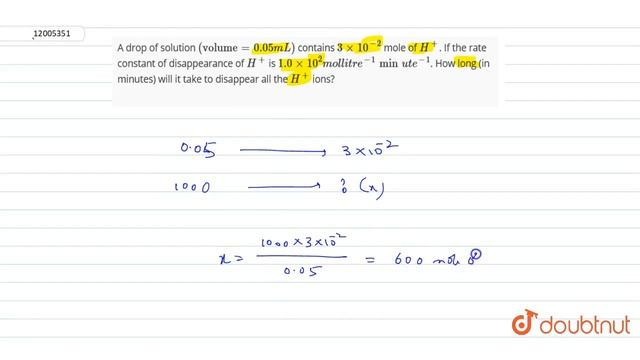 12005351
A drop of solution (volume = 0.05mL) contains 3 × 10⁻² mole of H⁺. If the rate
constant of disappearance of H⁺ is 1.0 × 10² mollitre⁻¹ min ute⁻¹. How long (in
minutes) will it take to disappear all the H⁺ ions?
0.05 ⟶ 3×10⁻²
1000 ⟶ ? (x)
x = 1000 × 3×10⁻² / 0.05 = 600 mole
doubtnut